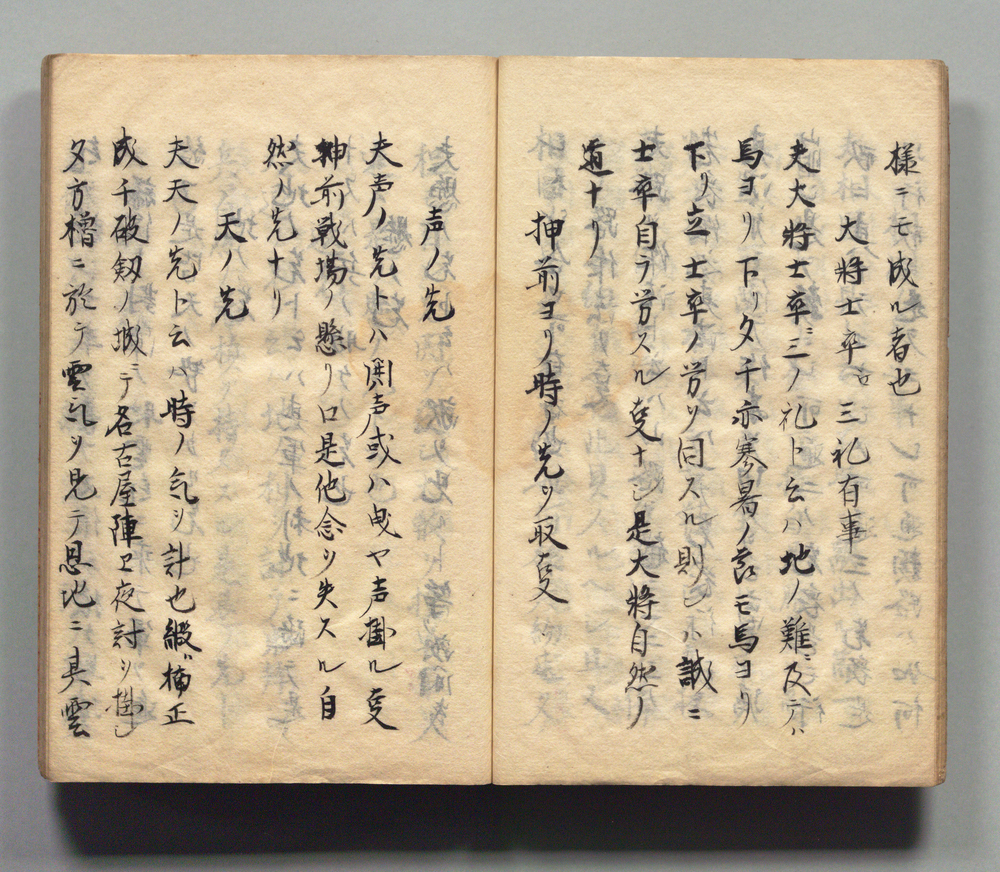 様ニモ成ル者也
大將士卒ニ三礼有事
夫大將士卒ニ三ノ礼ト云ハ地ノ難ニ反テハ
馬ヨリ下リタ千亦寒暑ノ節モ馬ヨリ
下リ立士卒ノ労ヲ同スル則ンハ誠ニ
士卒自ラ労スル叓ナシ是大將自然ノ
道ナリ
押前ヨリ時ノ先ヲ取叓
声ノ先
夫声ノ先トハ鬨声或ハ曳ヤ声掛ル叓
押前戰場ノ懸リ口是他念ヲ失スル自
然ノ先ナリ
天ノ先
夫天ノ先ト云ハ時ノ気ヲ計也縦ハ楠正
成千破釼ノ城ニテ名古屋陣ヱ夜討ヲ掛シ
夕方櫓ニ於テ雲気ヲ見テ恩地ニ其雲